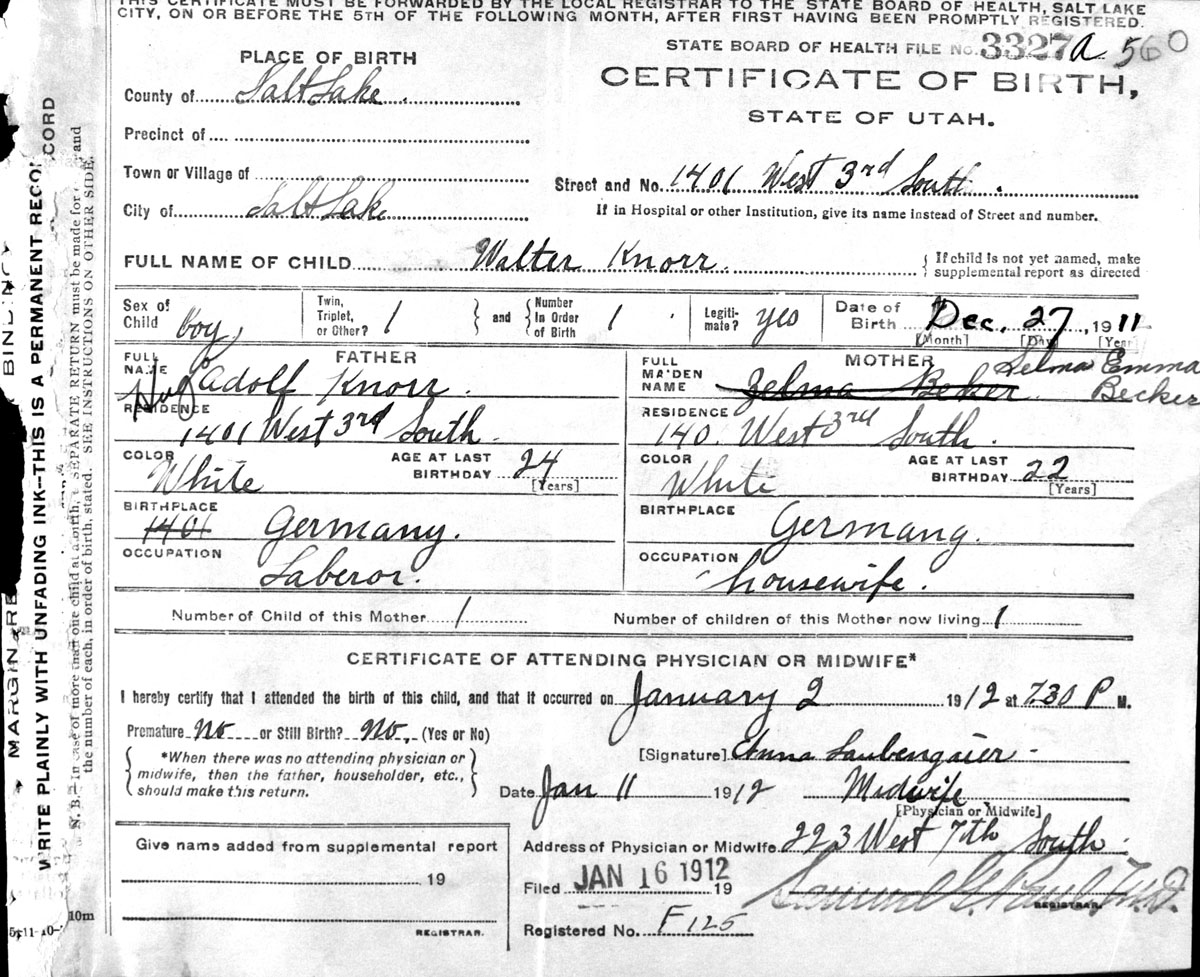 THIS CERTIFICATE MUST BE FORWARDED BY THE LOCAL REGISTRAR TO THE STATE BOARD OF HEALTH, SALT LAKE
CITY, ON OR BEFORE THE 5TH OF THE FOLLOWING MONTH, AFTER FIRST HAVING BEEN PROMPTLY REGISTERED.
STATE BOARD OF HEALTH FILE No. 3327 a 560
PLACE OF BIRTH
CERTIFICATE OF BIRTH,
STATE OF UTAH.
County of Salt Lake
Precinct of
Town or Village of
Street and No. 1401 West 3rd South.
City of Salt Lake
If in Hospital or other Institution, give its name instead of Street and number.
FULL NAME OF CHILD Walter Knorr.
If child is not yet named, make
supplemental report as directed
Sex of Child boy
Twin, Triplet, or Other? 1
and
Number In Order of Birth 1
Legiti-mate? yes
Date of Birth Dec. 27, 1911
[Month] [Day] [Year]
FATHER
FULL NAME Hugo Adolf Knorr.
RESIDENCE
1401 West 3rd South.
COLOR White
AGE AT LAST BIRTHDAY 24
[Years]
BIRTHPLACE
1401 Germany.
OCCUPATION
Laberor.
MOTHER
FULL MAIDEN NAME Zelma Becker Selma Emma Becker
RESIDENCE
140. West 3rd South.
COLOR White
AGE AT LAST BIRTHDAY 22
[Years]
BIRTHPLACE
Germang.
OCCUPATION
housewife.
Number of Child of this Mother 1
Number of children of this Mother now living 1
CERTIFICATE OF ATTENDING PHYSICIAN OR MIDWIFE*
I hereby certify that I attended the birth of this child, and that it occurred on January 2 1912 at 7.30 P M.
Premature No or Still Birth? No. (Yes or No)
*When there was no attending physician or
midwife, then the father, householder, etc.,
should make this return.
[Signature] Anna Laubengaier
Date Jan 11 1912 Midwife
[Physician or Midwife]
Address of Physician or Midwife 223 West 7th South.
Give name added from supplemental report
19
REGISTRAR.
Filed JAN 16 1912 19
Samuel G. Paul M.D.
REGISTRAR.
Registered No. F 125
10m
MARGIN RE BINDING
WRITE PLAINLY WITH UNFADING INK--THIS IS A PERMANENT RECORD
N. B.--In case of more than one child at a birth, a SEPARATE RETURN must be made for and
the number of each, in order of birth, stated. SEE INSTRUCTIONS ON OTHER SIDE.